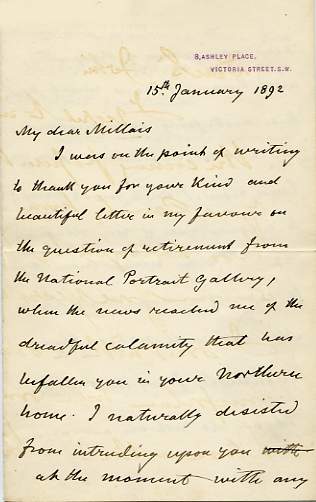 8, ASHLEY PLACE,
VICTORIA STREET. S.W.
15th January 1892
My dear Millais
I was on the point of writing
to thank you for your kind and
beautiful letter in my favour on
the question of retirement from
the National Portrait Gallery,
when the news reached me of the
dreadful calamity that has
befallen you in your Northern
home. I naturally desisted
from intruding upon you with
at the moment with any